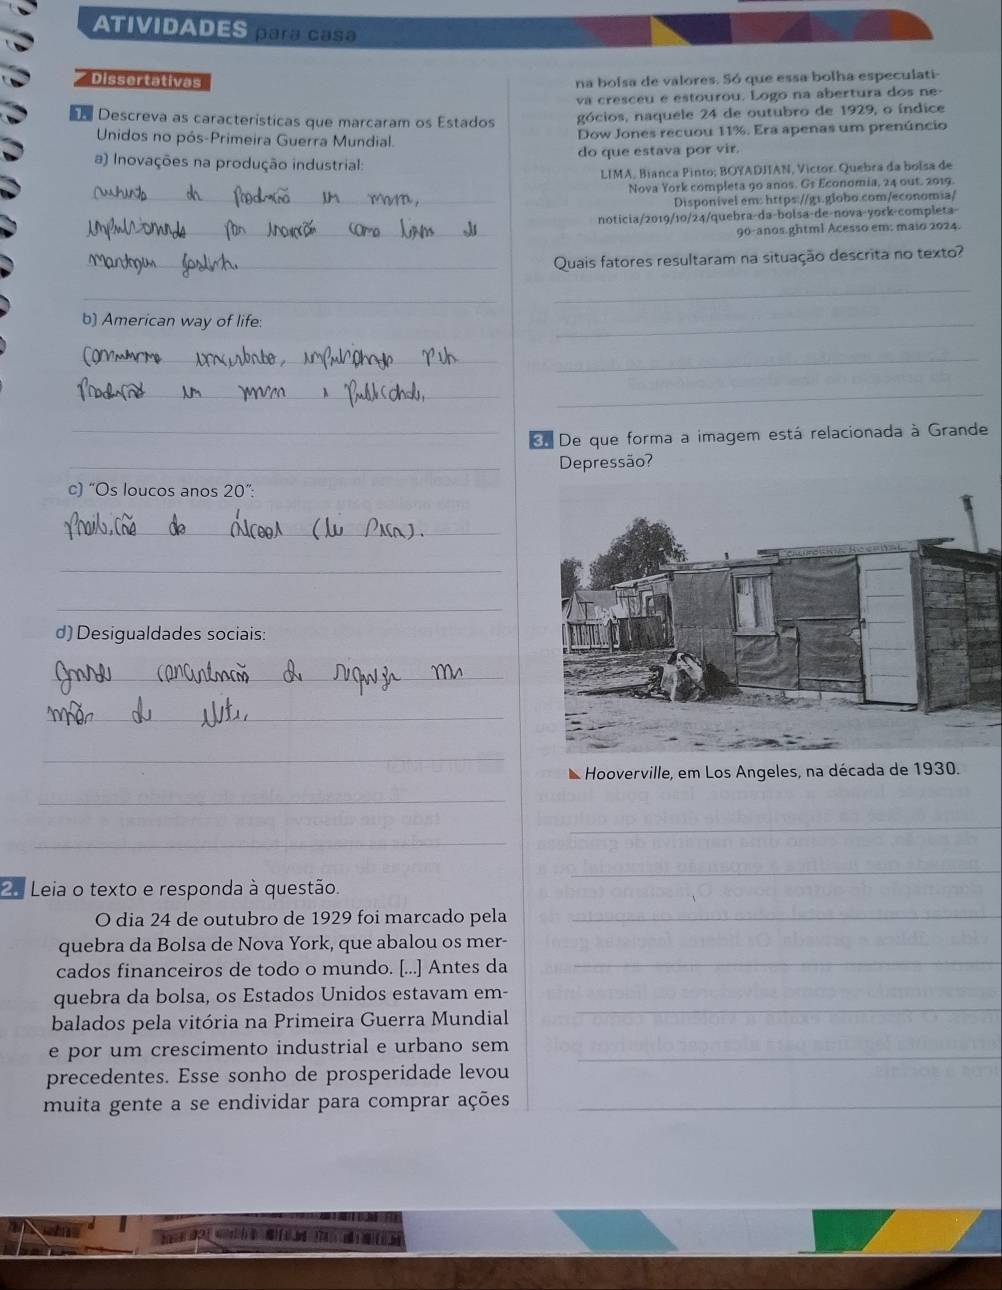 ATIVIDADES para casa
Dissertativas
1. Descreva as características que marcaram os Estados
Unidos no pós-Primeira Guerra Mundial.
a) Inovações na produção industrial:
aumento da Produção em massa,
impulsionada por inovações como linha de
montagem fordista.
b) American way of life:
Consumismo incentivado, impulsionado pela
Produção em massa e publicidade,
c) "Os loucos anos 20":
Proibição do álcool (Lei Seca).
d) Desigualdades sociais:
Grande concentração de riqueza na
mão da elite,
2. Leia o texto e responda à questão.
O dia 24 de outubro de 1929 foi marcado pela
quebra da Bolsa de Nova York, que abalou os mer-
cados financeiros de todo o mundo. [...] Antes da
quebra da bolsa, os Estados Unidos estavam em-
balados pela vitória na Primeira Guerra Mundial
e por um crescimento industrial e urbano sem
precedentes. Esse sonho de prosperidade levou
muita gente a se endividar para comprar ações
na bolsa de valores. Só que essa bolha especulati-
va cresceu e estourou. Logo na abertura dos ne-
gócios, naquele 24 de outubro de 1929, o índice
Dow Jones recuou 11%. Era apenas um prenúncio
do que estava por vir.
LIMA, Bianca Pinto; BOYADJIAN, Victor. Quebra da bolsa de
Nova York completa 90 anos. G1 Economia, 24 out. 2019.
Disponível em: https://g1.globo.com/economia/
noticia/2019/10/24/quebra-da-bolsa-de-nova-york-completa-
90-anos.ghtml Acesso em: maio 2024.
Quais fatores resultaram na situação descrita no texto?
3. De que forma a imagem está relacionada à Grande
Depressão?
CALIFORNIA HOSPITAL
Hooverville, em Los Angeles, na década de 1930.